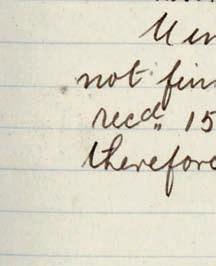 not fin
recd. 15
therefore